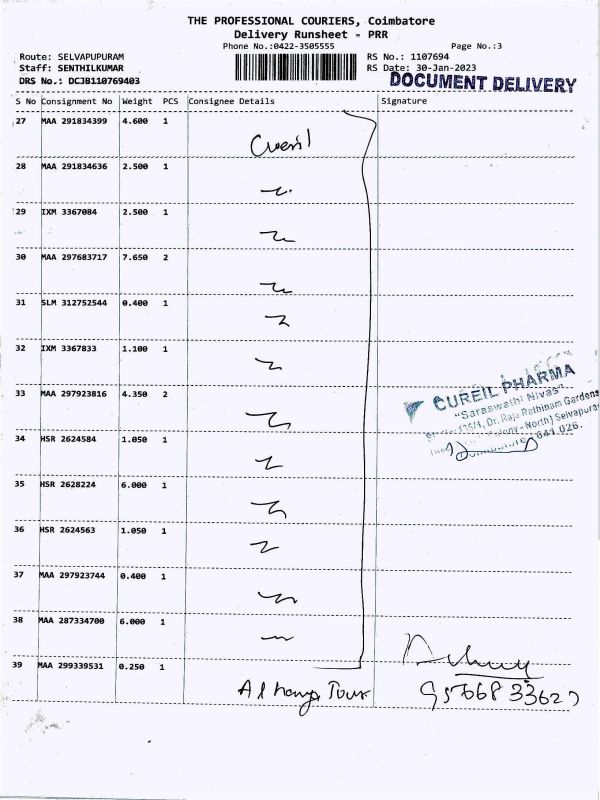 THE PROFESSIONAL COURIERS, Coimbatore
Delivery Runsheet - PRR
Phone No.:0422-3505555 Page No.:3
Route: SELVAPUPURAM RS No.: 1107694
Staff: SENTHILKUMAR RS Date: 30-Jan-2023
DRS No.: DCJB110769403 DOCUMENT DELIVERY
S No Consignment No Weight PCS Consignee Details Signature
27 MAA 291834399 4.600 1
Cureil
28 MAA 291834636 2.500 1
29 IXM 3367084 2.500 1
30 MAA 297683717 7.650 2
31 SLM 312752544 0.400 1
32 IXM 3367833 1.100 1
33 MAA 297923816 4.350 2
CUREIL PHARMA
"Saraswathi Nivas"
Dr. Raja Rathinam Gardens
North) Selvapura
641 026.
34 HSR 2624584 1.050 1
35 HSR 2628224 6.000 1
36 HSR 2624563 1.050 1
37 MAA 297923744 0.400 1
38 MAA 287334700 6.000 1
39 MAA 299339531 0.250 1
Tour